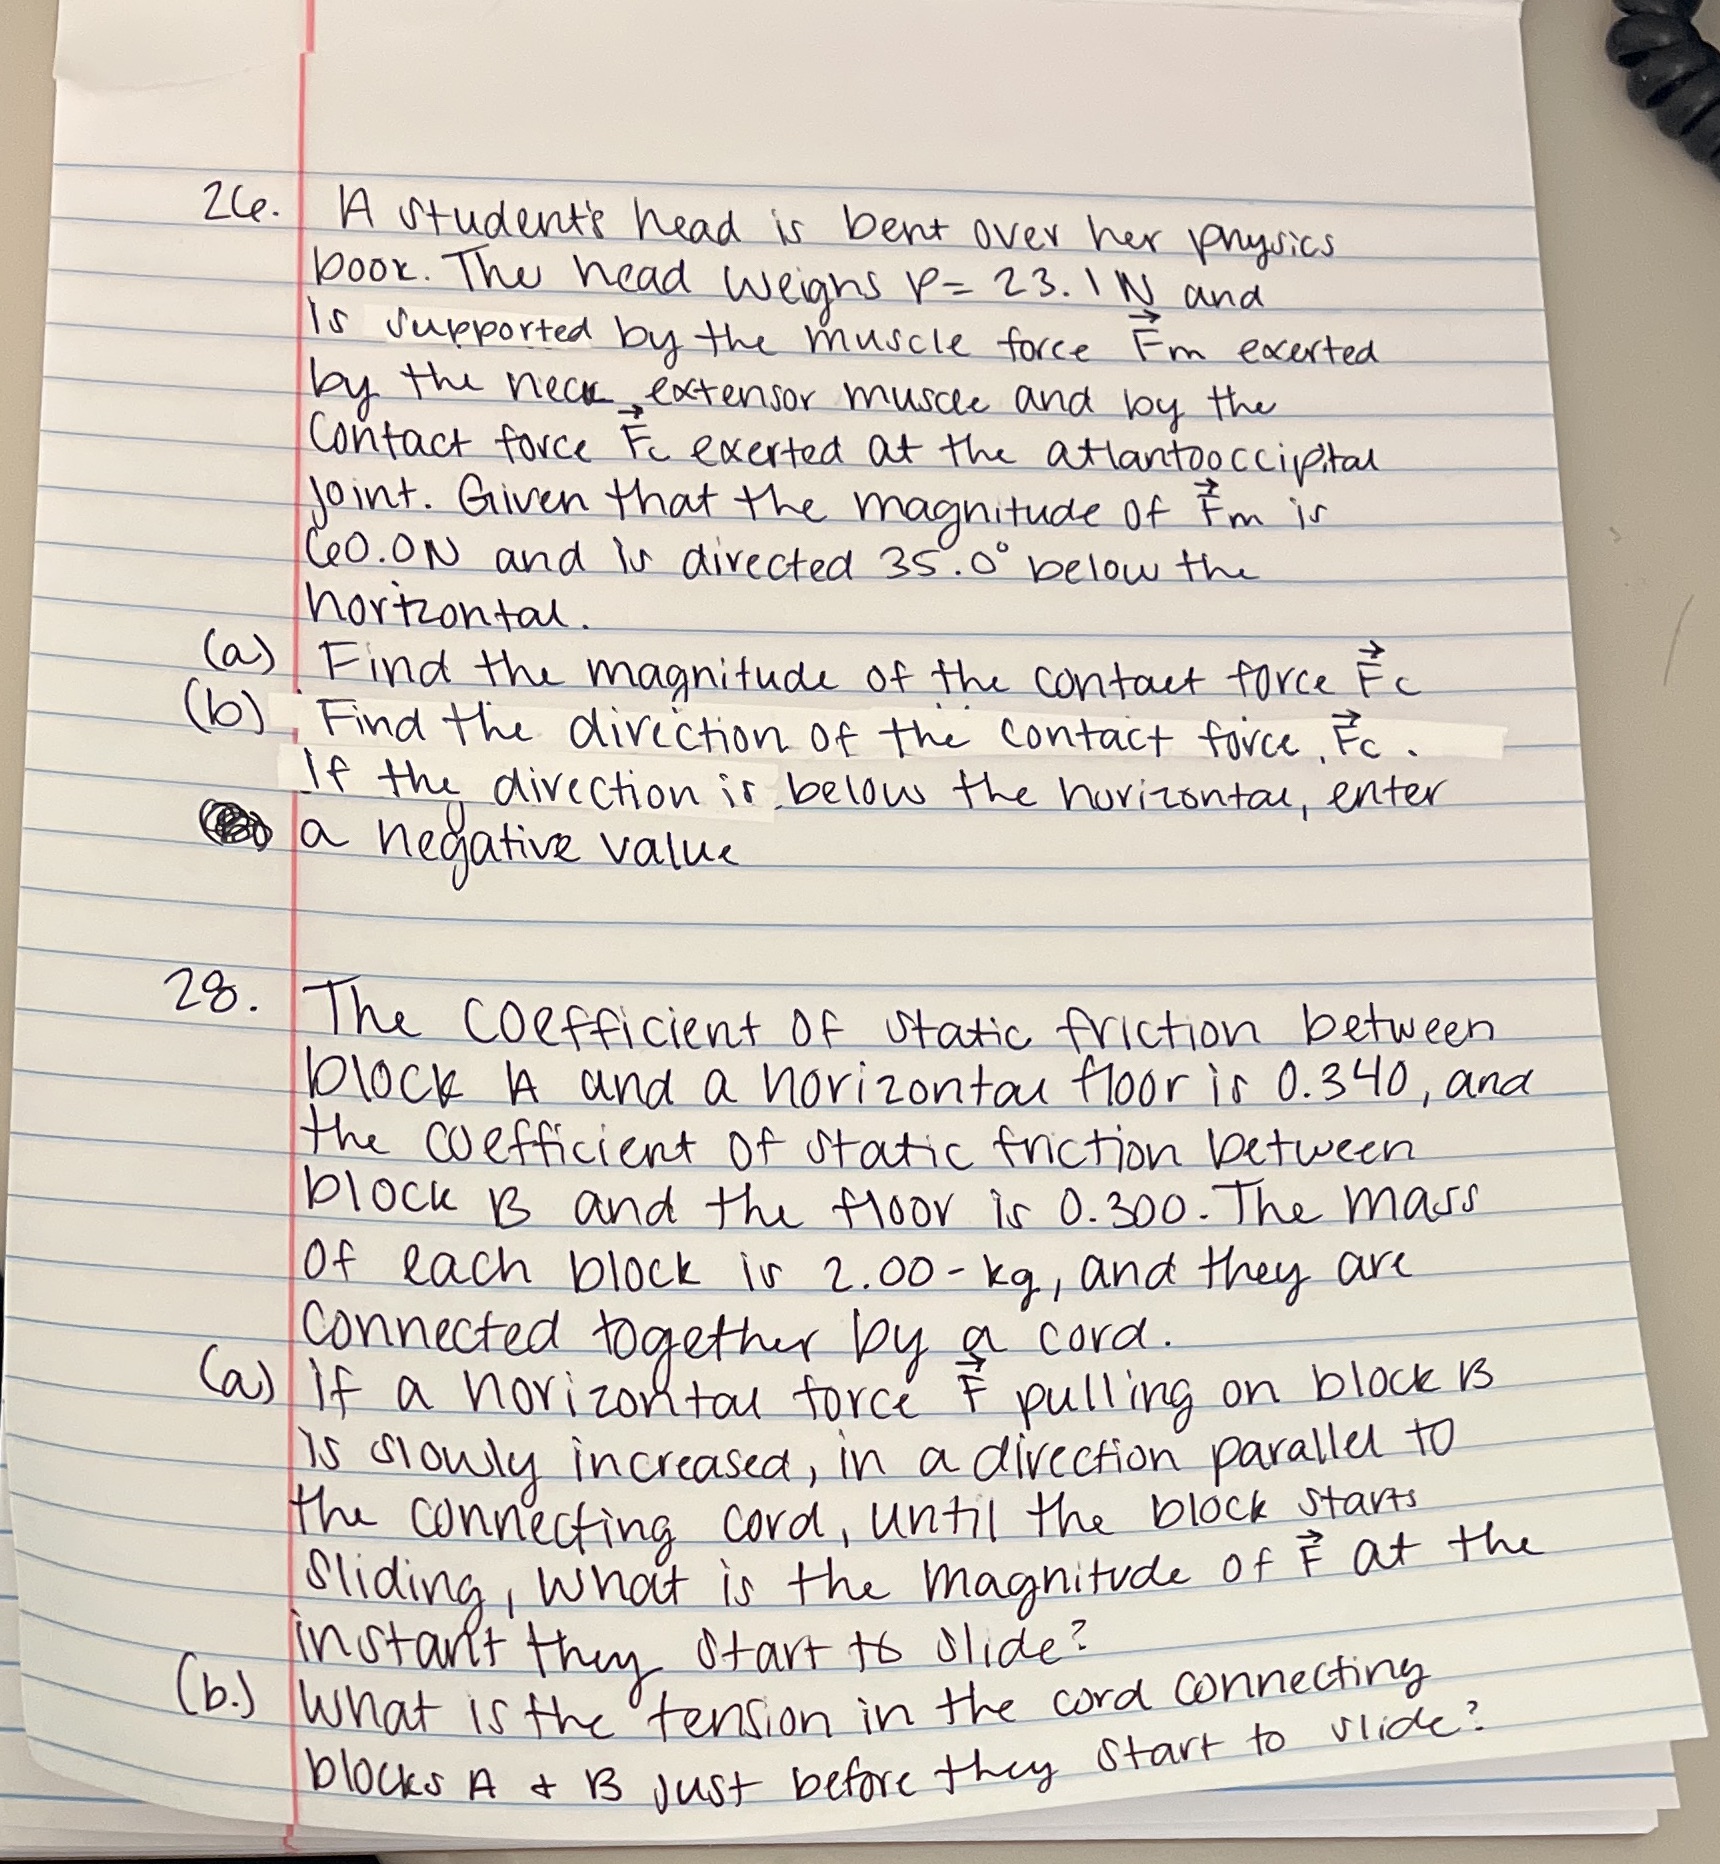 26. A student's head is bent over her physics
book. The head weighs P= 23.1N and
is supported by the muscle force F⃗m exerted
by the neck extensor muscle and by the
contact force F⃗c exerted at the atlantooccipital
joint. Given that the magnitude of F⃗m is
60.0N and is directed 35.0° below the
horizontal.
(a) Find the magnitude of the contact force F⃗c
(b) Find the direction of the contact force, F⃗c.
If the direction is below the horizontal, enter
a negative value
28. The coefficient of static friction between
block A and a horizontal floor is 0.340, and
the coefficient of static friction between
block B and the floor is 0.300. The mass
of each block is 2.00-kg, and they are
connected together by a cord.
(a) if a horizontal force F⃗ pulling on block B
is slowly increased, in a direction parallel to
the connecting cord, until the block starts
sliding, what is the magnitude of F⃗ at the
instant they start to slide?
(b.) What is the tension in the cord connecting
blocks A & B just before they start to slide?